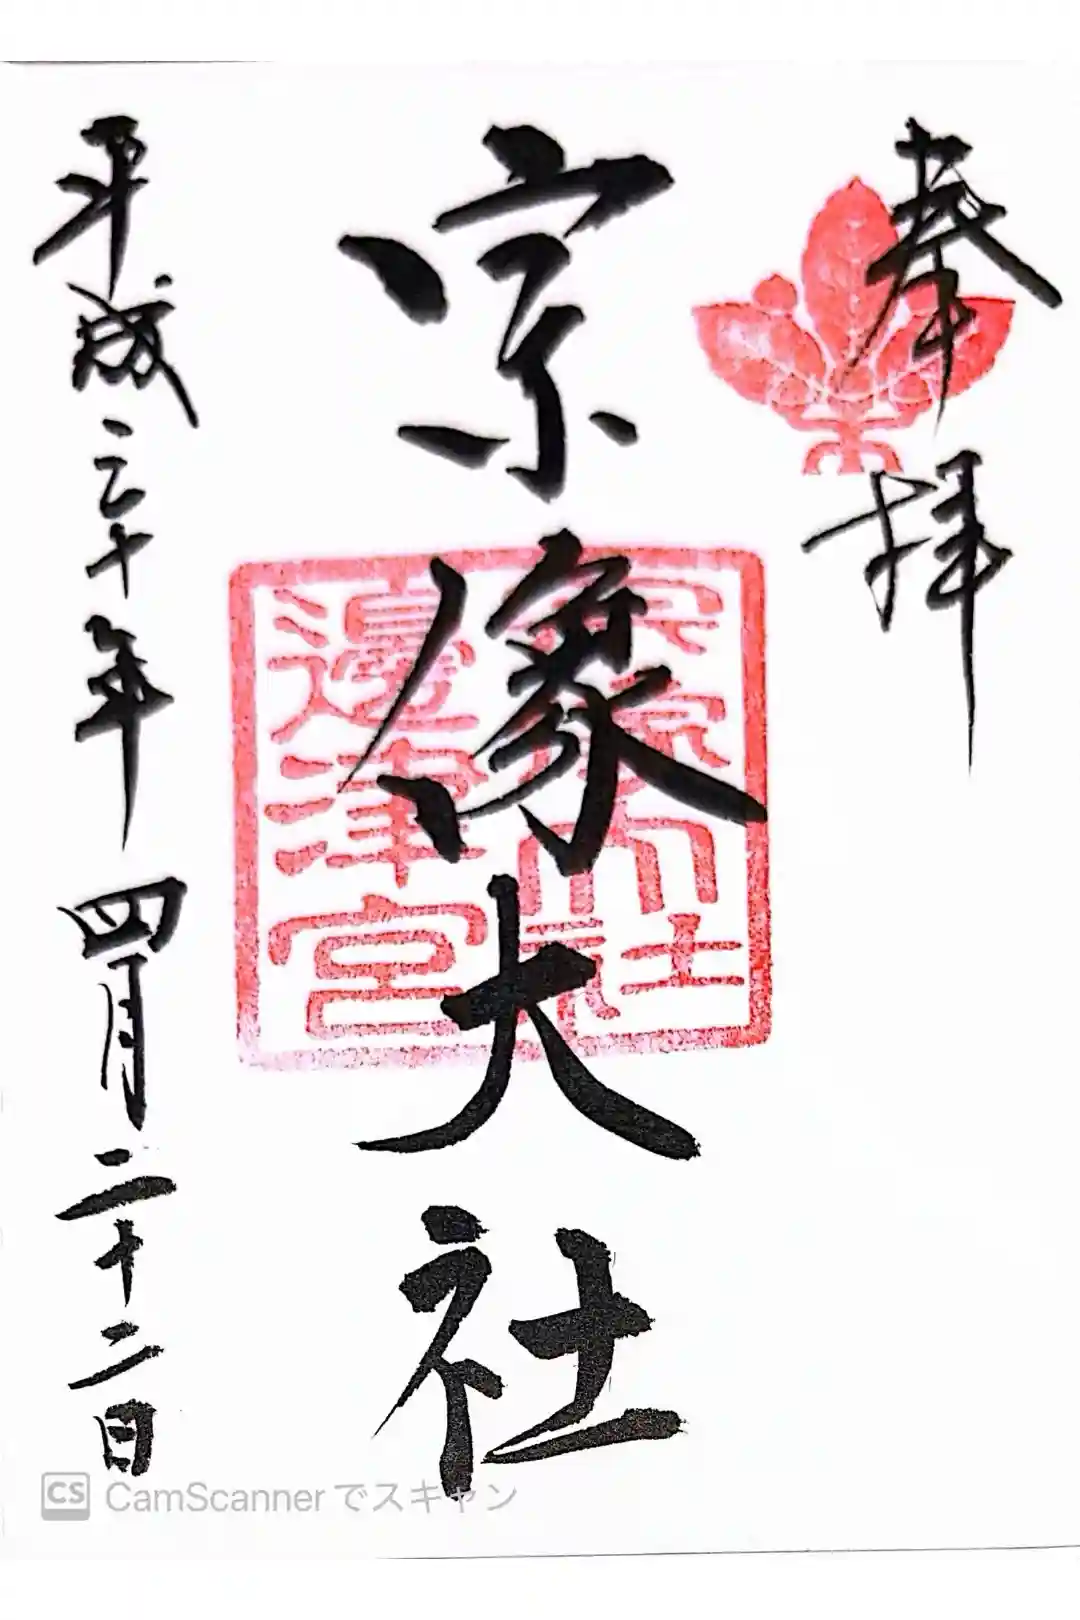 奉拝
宗像大社
宗像大社
邊津宮
平成三十年四月二十二日
CS CamScannerでスキャン